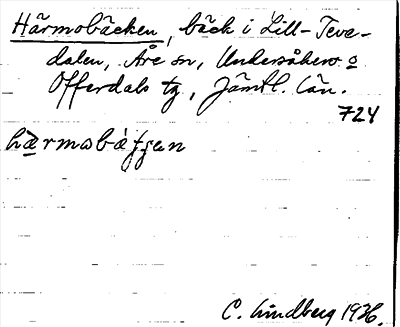 Härmobäcken, bäck i Lill-Teve-
dalen, Åre sn, Undersåkers o
Offerdals tg, Jämtl. län.
724
hærmobáʃʃan
C. Lindberg 1936.